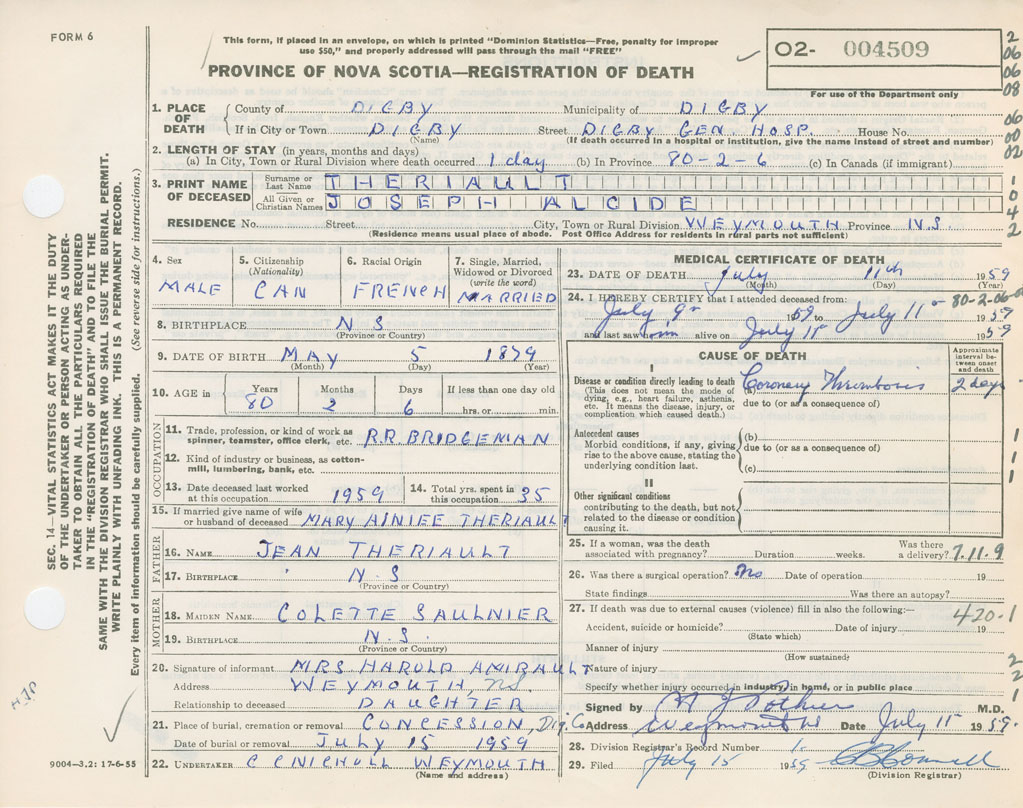 FORM 6
This form, if placed in an envelope, on which is printed "Dominion Statistics—Free, penalty for improper
use $50," and properly addressed will pass through the mail "FREE"
PROVINCE OF NOVA SCOTIA—REGISTRATION OF DEATH
02- 004509
For use of the Department only
2
06
06
08
06
00
02
1
0
4
2
1. PLACE OF DEATH
County of DIGBY Municipality of DIGBY
If in City or Town DIGBY Street DIGBY GEN. HOSP. House No.
(Name) (If death occurred in a hospital or institution, give the name instead of street and number)
2. LENGTH OF STAY (in years, months and days)
(a) In City, Town or Rural Division where death occurred 1 day (b) In Province 80-2-6 (c) In Canada (if immigrant)
3. PRINT NAME OF DECEASED
Surname or Last Name THERIAULT
All Given or Christian Names JOSEPH ALCIDE
RESIDENCE No. Street City, Town or Rural Division WEYMOUTH Province N.S.
(Residence means usual place of abode. Post Office Address for residents in rural parts not sufficient)
4. Sex
MALE
5. Citizenship
(Nationality)
CAN
6. Racial Origin
FRENCH
7. Single, Married, Widowed or Divorced
(write the word)
MARRIED
8. BIRTHPLACE N S
(Province or Country)
9. DATE OF BIRTH MAY 5 1879
(Month) (Day) (Year)
10. AGE in
Years Months Days If less than one day old
80 2 6 hrs. or min.
OCCUPATION
11. Trade, profession, or kind of work as
spinner, teamster, office clerk, etc. R.R. BRIDGEMAN
12. Kind of industry or business, as cotton-
mill, lumbering, bank, etc.
13. Date deceased last worked
at this occupation 1959
14. Total yrs. spent in
this occupation 35
15. If married give name of wife
or husband of deceased MARY AINIEE THERIAULT
FATHER
16. NAME JEAN THERIAULT
17. BIRTHPLACE N.S
(Province or Country)
MOTHER
18. MAIDEN NAME COLETTE SAULNIER
19. BIRTHPLACE N.S.
(Province or Country)
20. Signature of informant MRS HAROLD AMIRAULT
Address WEYMOUTH, NS.
Relationship to deceased DAUGHTER
21. Place of burial, cremation or removal CONCESSION, Dig. Co
Date of burial or removal JULY 15 1959
22. UNDERTAKER C C NICHOLL WEYMOUTH
(Name and address)
MEDICAL CERTIFICATE OF DEATH
23. DATE OF DEATH July 11th 1959
(Month) (Day) (Year)
24. I HEREBY CERTIFY that I attended deceased from: 80-2-06-
July 9 1959 to July 11 1959
and last saw him alive on July 11 1959
CAUSE OF DEATH
Approximate interval between onset and death
I
Disease or condition directly leading to death
(This does not mean the mode of
dying, e.g., heart failure, asthenia,
etc. It means the disease, injury, or
complication which caused death.)
(a) Coronary Thrombosis 2 days
due to (or as a consequence of)
Antecedent causes
Morbid conditions, if any, giving
rise to the above cause, stating the
underlying condition last.
(b)
due to (or as a consequence of)
(c)
1
1
1
II
Other significant conditions
contributing to the death, but not
related to the disease or condition
causing it.
25. If a woman, was the death Was there
associated with pregnancy? Duration weeks. a delivery? 7.11.9
26. Was there a surgical operation? No Date of operation 19
State findings Was there an autopsy?
27. If death was due to external causes (violence) fill in also the following:—
420.1
Accident, suicide or homicide? Date of injury 19
(State which)
Manner of injury
(How sustained)
Nature of injury
2
2
1
Specify whether injury occurred in industry, in home, or in public place
Signed by Pothier M.D.
Address Weymouth Date July 11 1959.
28. Division Registrar's Record Number
29. Filed July 15 1959
(Division Registrar)
SEC. 14—VITAL STATISTICS ACT MAKES IT THE DUTY
OF THE UNDERTAKER OR PERSON ACTING AS UNDER-
TAKER TO OBTAIN ALL THE PARTICULARS REQUIRED
IN THE "REGISTRATION OF DEATH" AND TO FILE THE
SAME WITH THE DIVISION REGISTRAR WHO SHALL ISSUE THE BURIAL PERMIT.
WRITE PLAINLY WITH UNFADING INK. THIS IS A PERMANENT RECORD.
Every item of information should be carefully supplied. (See reverse side for instructions.)
9004—3.2: 17-6-55